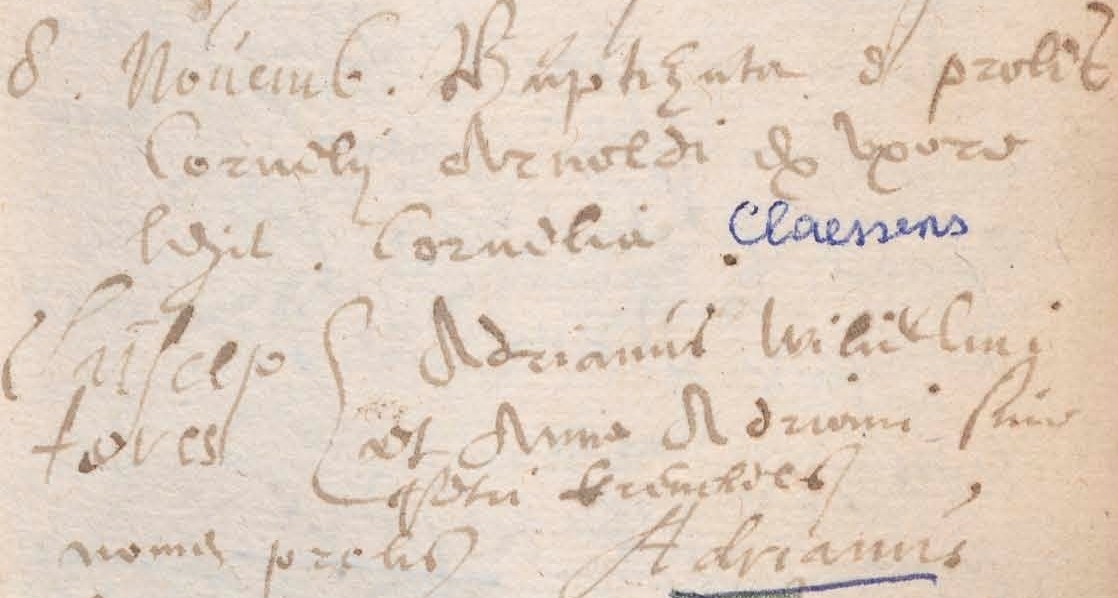 8. Novemb. Baptizata e proles
Cornelij Arnoldi ex uxore
legit. Cornelia Claessens
Suscep { Adrianus
tores et Anna Adriani
nomen prolis Adrianus